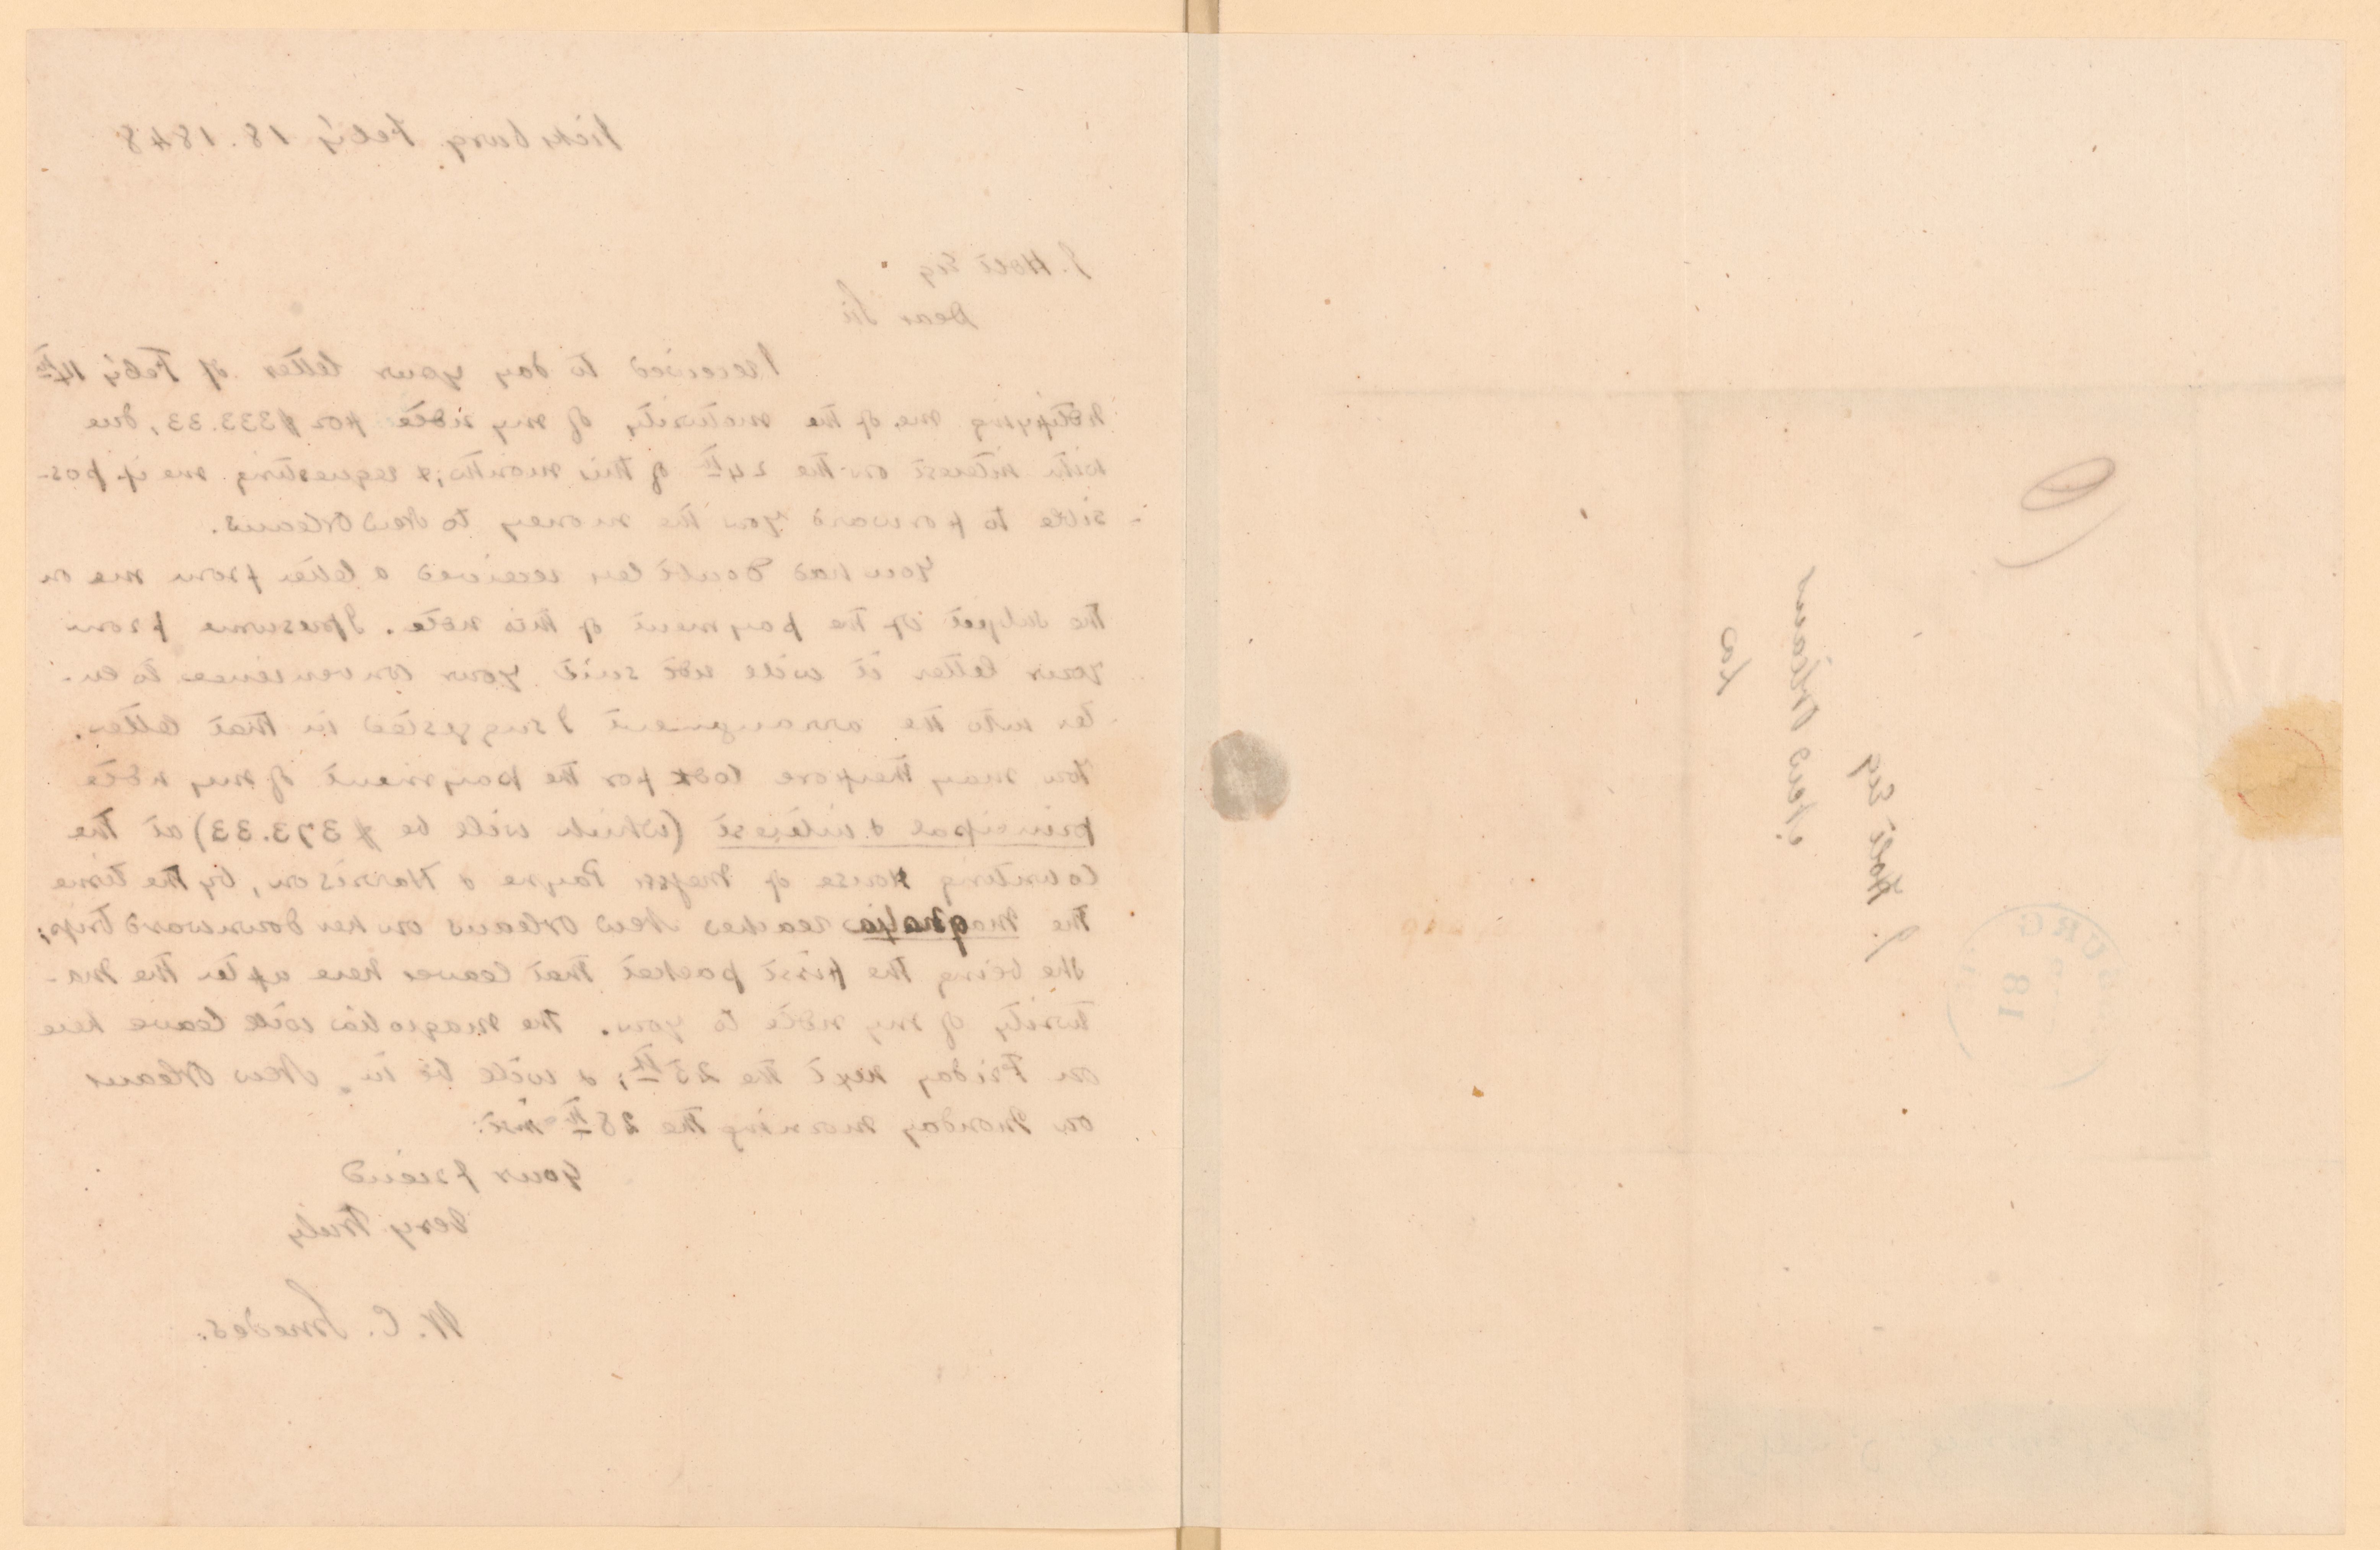 Vicksburg Feb'y 18. 1848
J. Holt Esq
Dear Sir
I received to day your letter of Feb'y 14th
notifying me of the maturity of my note for $333.33, due
with interest on the 24th of this month; & requesting me if pos-
-sible to forward you the money to New Orleans.
You had doubtless received a letter from me on
the subject of the payment of this note. I presume from
your letter it will not suit your convenience to en-
-ter into the arrangement I suggested in that letter.
You may therefore look for the payment of my note
principal & interest (which will be $373.33) at the
Counting House of Messrs Payne & Harrison, by the time
the Magnolia reaches New Orleans on her downward trip;
she being the first packet that leaves here after the ma-
turity of my note to you. The Magnolia will leave here
on Friday next the 25th; & will be in New Orleans
on Monday morning the 28th inst:
Your friend
Very truly
W. C. Smedes.
J. Holt Esq
New Orleans
La
BURG
18